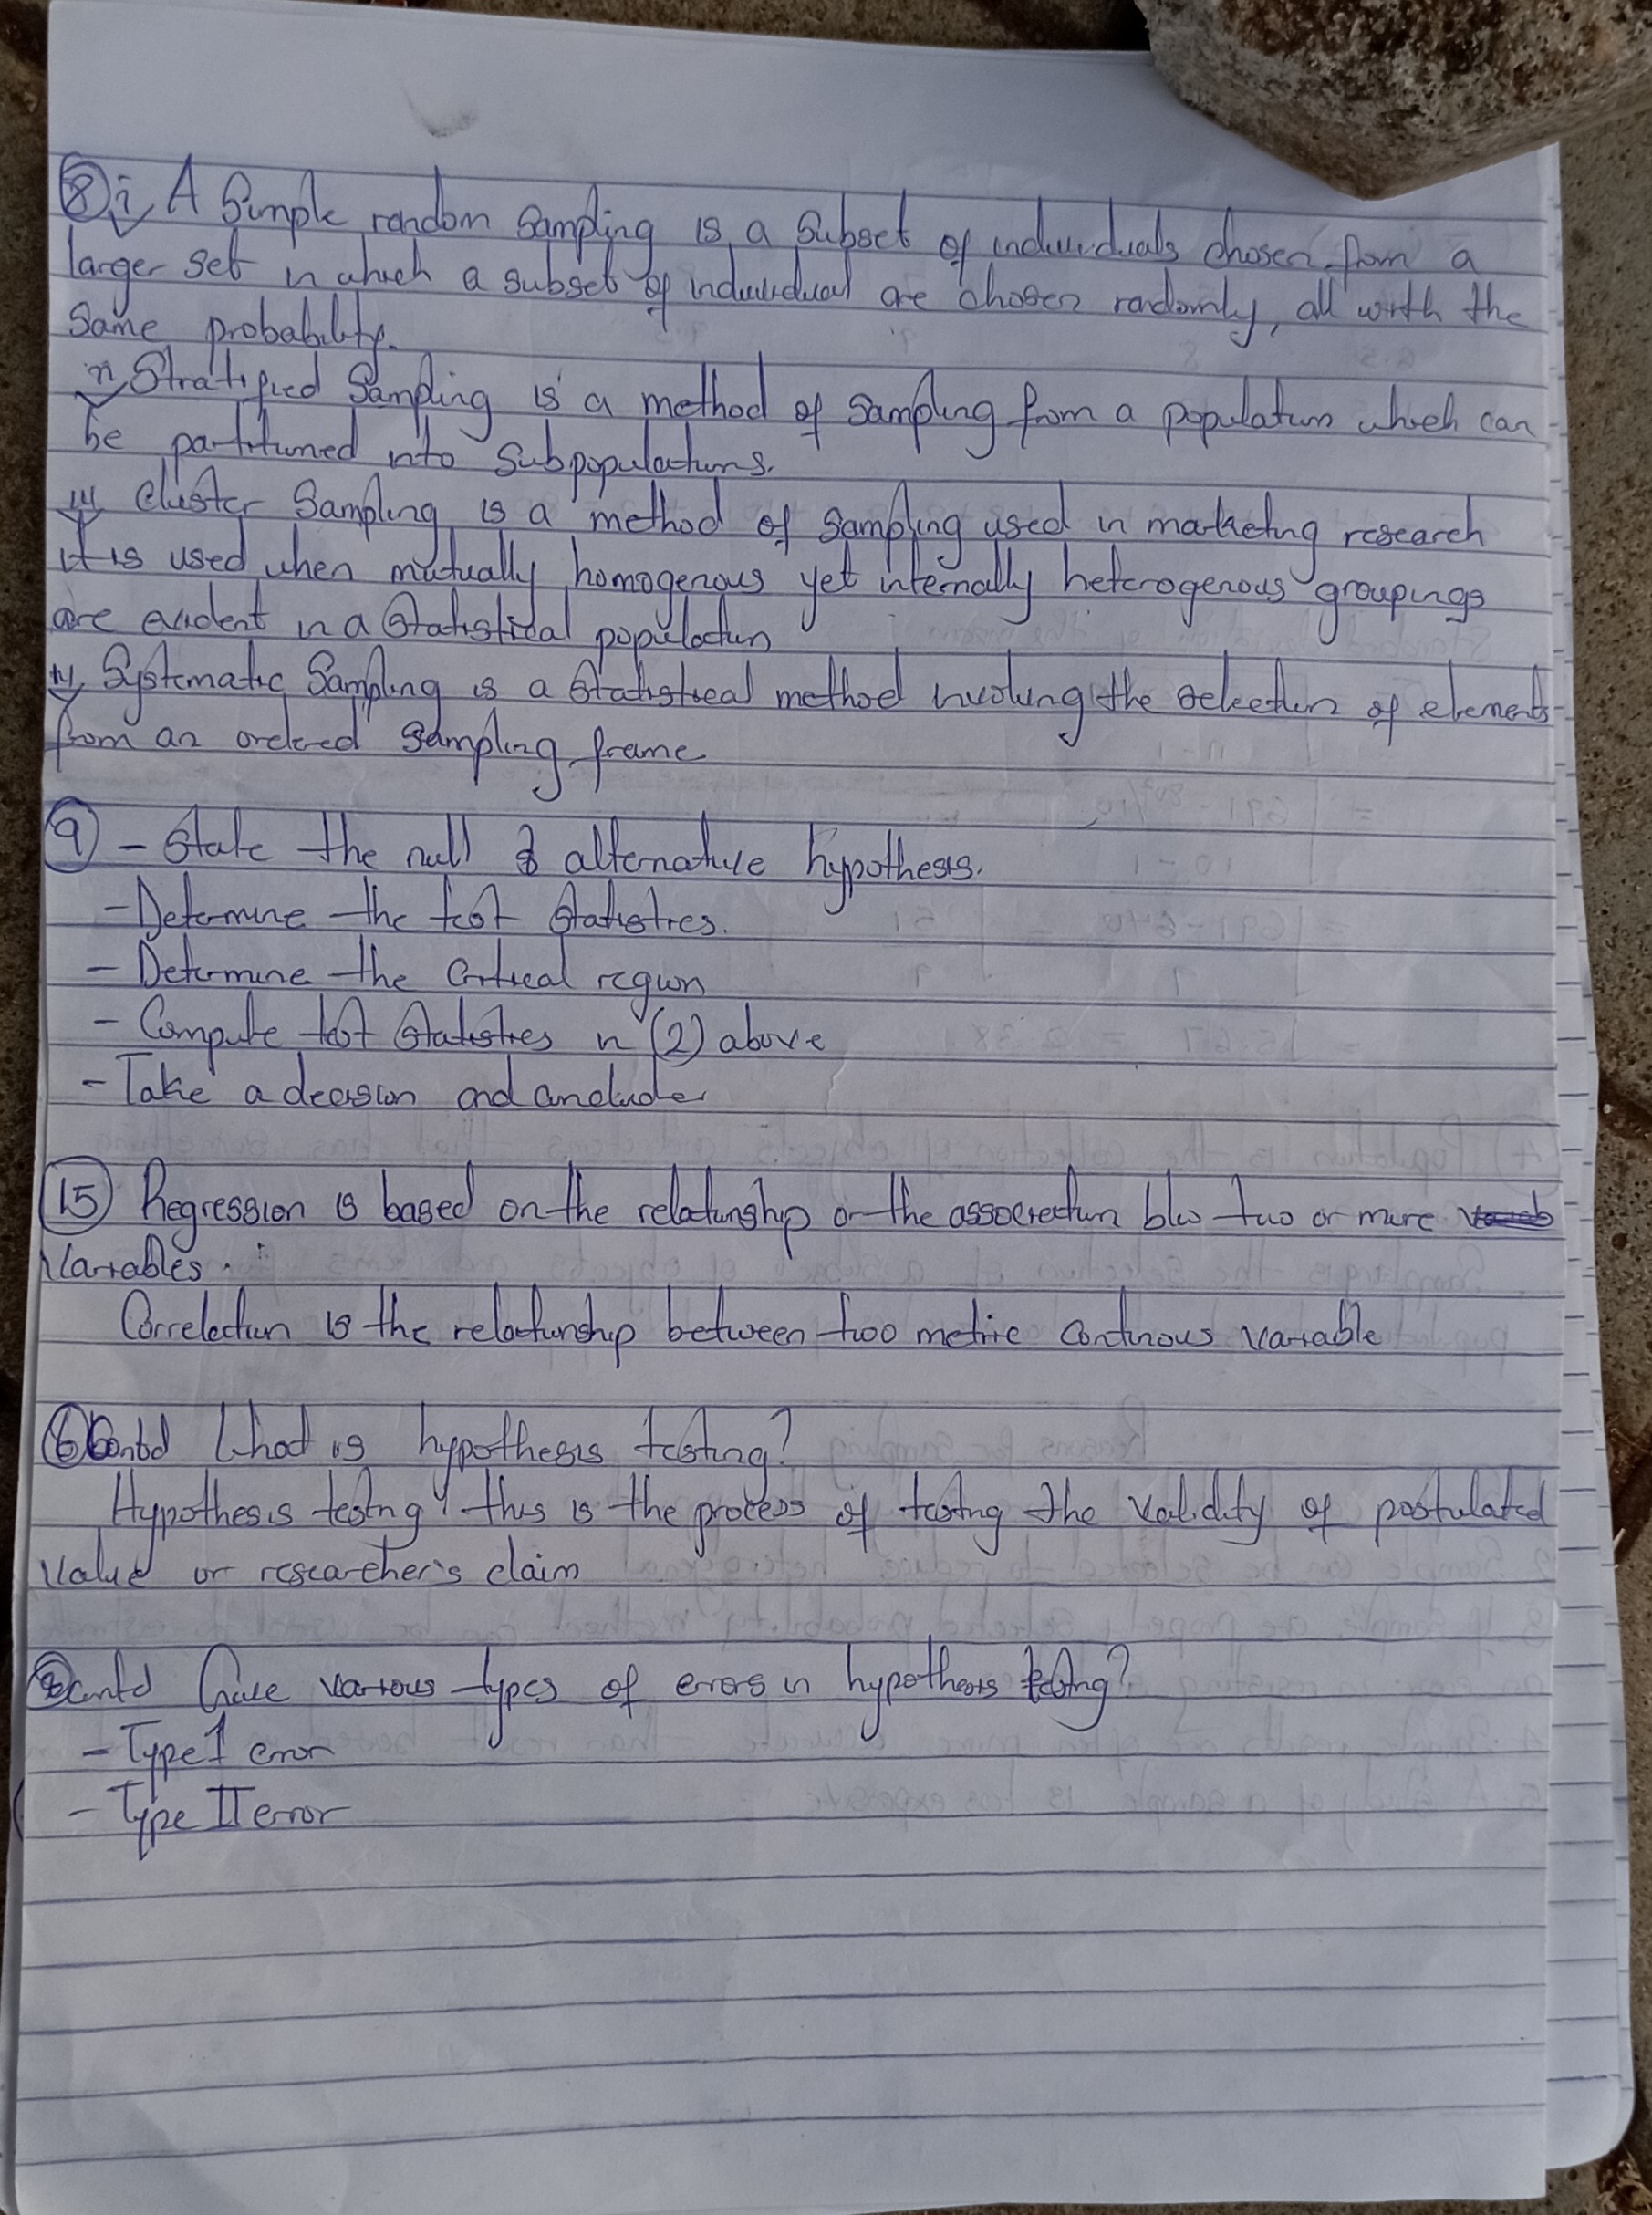 ⑧i, A Simple random Sampling is a Subset of individuals chosen from a
larger set in which a subset of individual are chosen randomly, all with the
Same probability.
ii, Stratified Sampling is a method of Sampling from a population which can
be partitioned into Subpopulations.
iii, Cluster Sampling is a method of Sampling used in marketing research
it is used when mutually homogenous yet internally heterogenous groupings
are evident in a Statistical population
iv, Systematic Sampling is a Statistical method involving the selection of elements
from an ordered Sampling frame
⑨ - State the null & alternative hypothesis.
- Determine the test Statistics.
- Determine the Critical region
- Compute test Statistics in (2) above
- Take a decision and conclude
⑮ Regression is based on the relationship or the association b/w two or more
Variables.
Correlation is the relationship between two metric Continous Variable
⑥Contd What is hypothesis testing?
Hypothesis testing: this is the process of testing the validity of postulated
value or researcher's claim
⑧contd Give various types of errors in hypothesis testing?
- Type I error
- Type II error